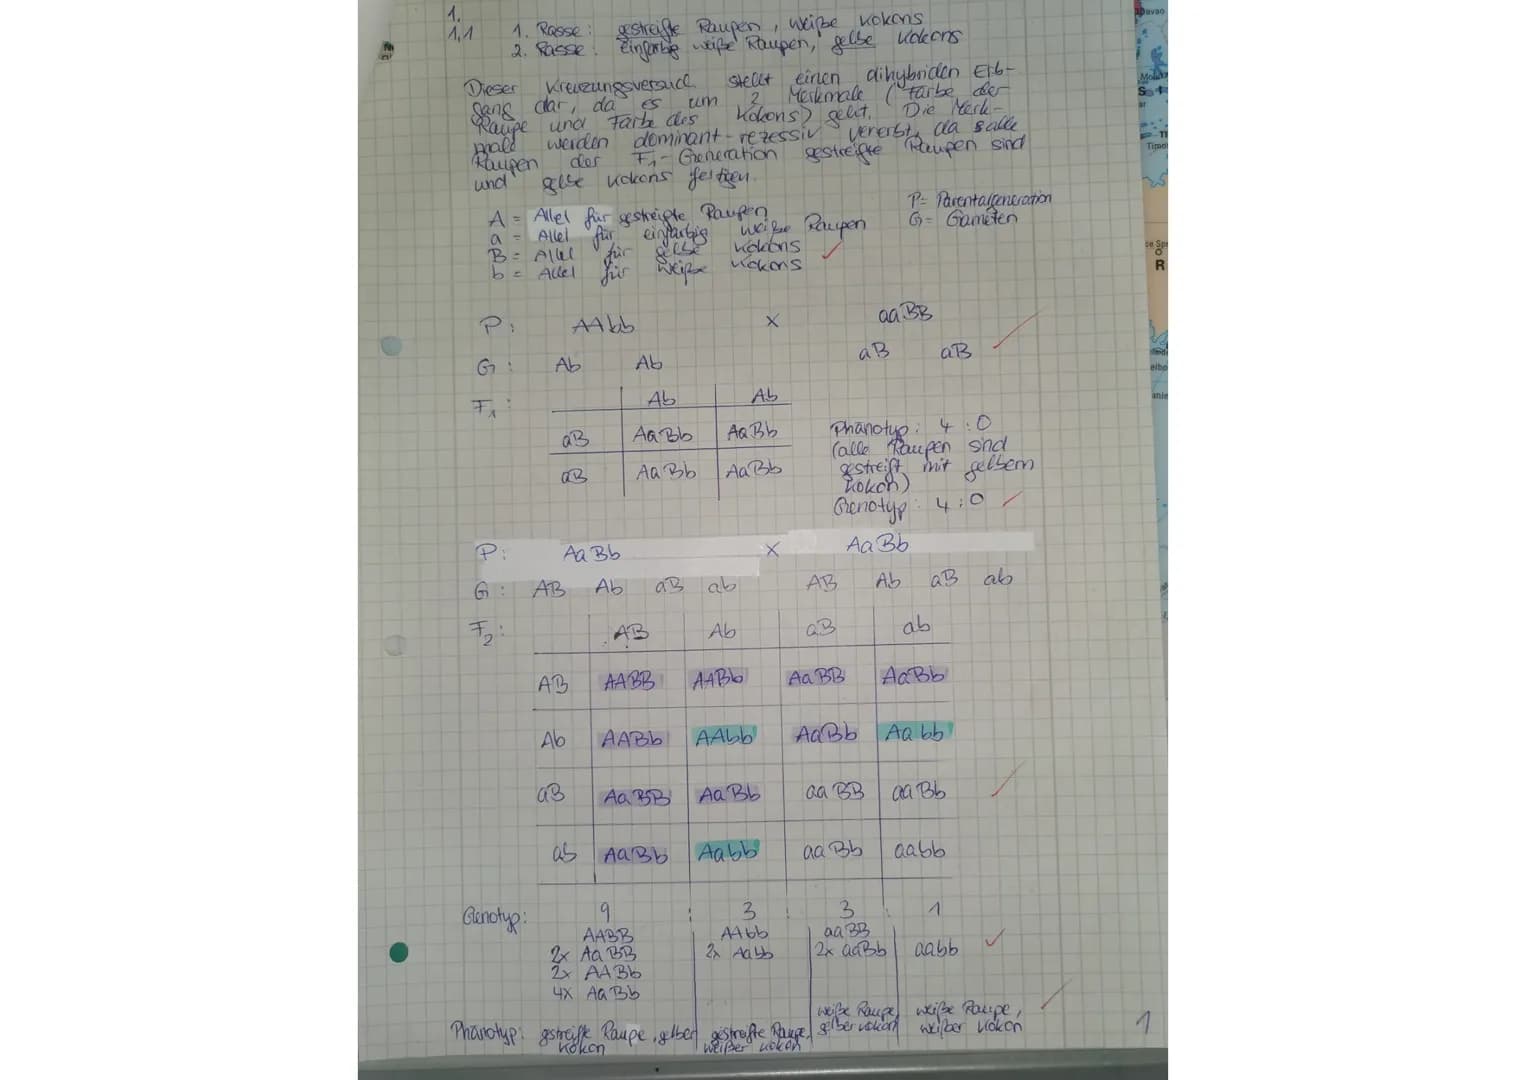 1.
1,1 1. Rasse: gestreifte Raupen, weiße Kokons
2. Rasse: einfarbig weiße Raupen, gelbe Kokons
Dieser Kreuzungsversuch stellt einen dihybriden Erb-
gang dar, da es um 2 Merkmale (Farbe der
Raupe und Farbe des Kokons) geht. Die Merk-
male werden dominant-rezessiv vererbt, da alle
Raupen der F1-Generation gestreifte Raupen sind
und gelbe Kokons fertigen.
P= Parentalgeneration
G= Gameten
A = Allel für gestreifte Raupen
a = Allel für einfarbig weiße Raupen
B = Allel für gelbe Kokons
b = Allel für weiße Kokons
P: AAbb x aaBB
G: Ab Ab aB aB
F1: Ab Ab
aB AaBb AaBb
aB AaBb AaBb
Phänotyp: 4 : 0
(alle Raupen sind
gestreift mit gelbem
Kokon)
Genotyp: 4:0
P: AaBb x AaBb
G: AB Ab aB ab AB Ab aB ab
F2: AB Ab aB ab
AB AABB AABb AaBB AaBb
Ab AABb AAbb AaBb Aabb
aB AaBB AaBb aaBB aaBb
ab AaBb Aabb aaBb aabb
Genotyp: 9 : 3 : 3 : 1
AABB AAbb aaBB
2x AaBB 2x Aabb 2x aaBb aabb
2x AABb
4x AaBb
Phänotyp: gestreifte Raupe, gelber Kokon
gestreifte Raupe, weißer Kokon
weiße Raupe, gelber Kokon
weiße Raupe, weißer Kokon
1
Davao
S
Timor
R